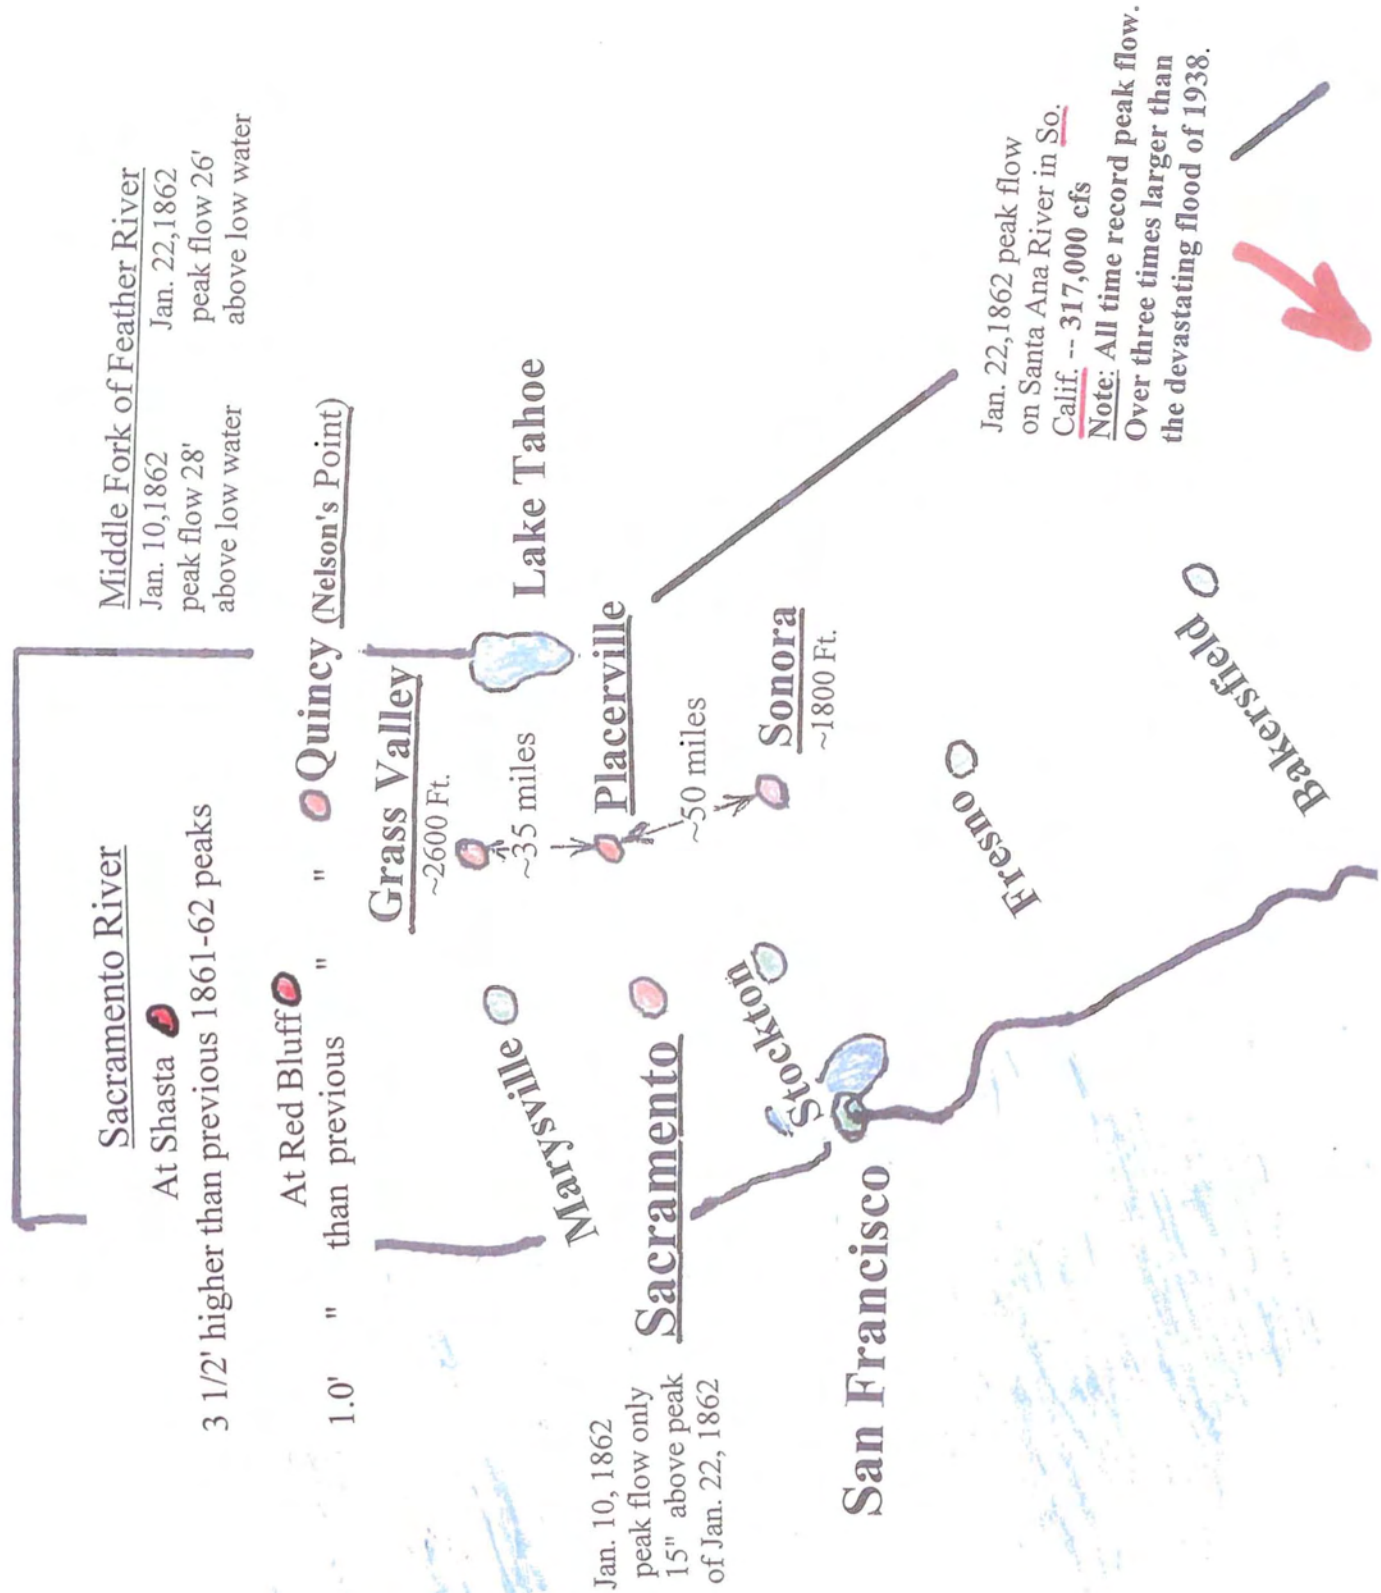 Sacramento River
At Shasta
3 1/2' higher than previous 1861-62 peaks
At Red Bluff
1.0' " than previous " "
Middle Fork of Feather River
Jan. 10,1862
peak flow 28'
above low water
Jan. 22,1862
peak flow 26'
above low water
Quincy (Nelson's Point)
Grass Valley
~2600 Ft.
~35 miles
Lake Tahoe
Marysville
Placerville
~50 miles
Jan. 10, 1862
peak flow only
15" above peak
of Jan. 22, 1862
Sacramento
Stockton
Sonora
~1800 Ft.
San Francisco
Fresno
Bakersfield
Jan. 22,1862 peak flow
on Santa Ana River in So.
Calif. -- 317,000 cfs
Note: All time record peak flow.
Over three times larger than
the devastating flood of 1938.